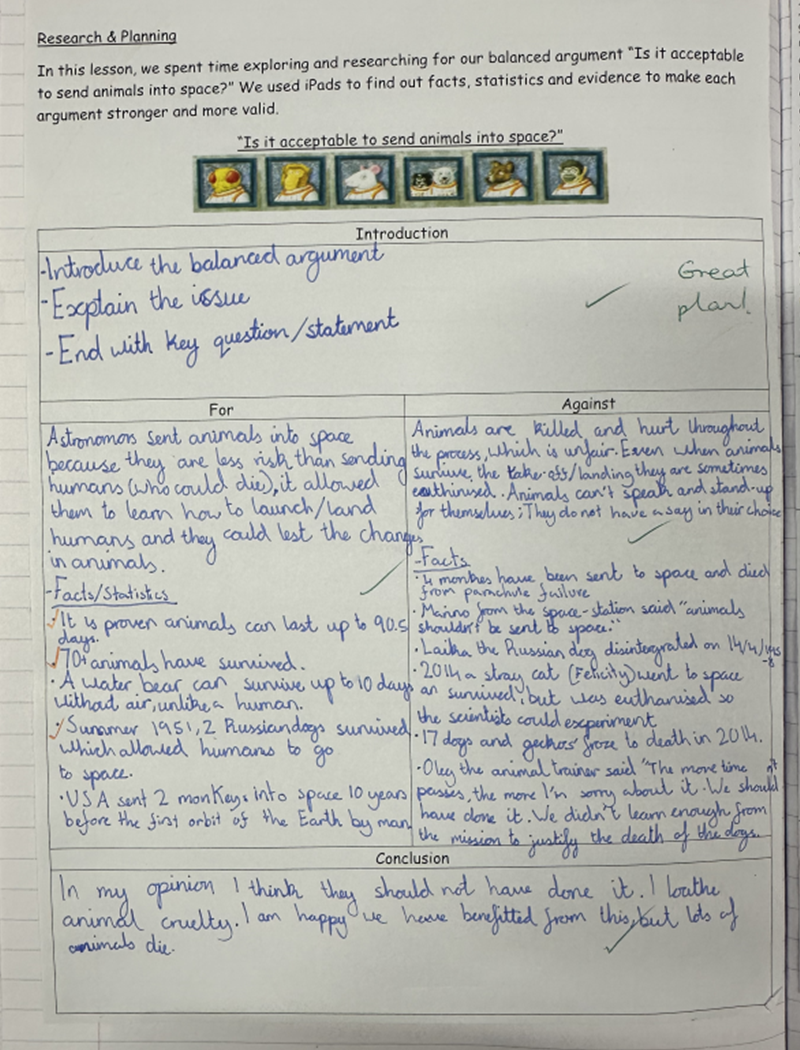 Research & Planning
In this lesson, we spent time exploring and researching for our balanced argument "Is it acceptable
to send animals into space?" We used iPads to find out facts, statistics and evidence to make each
argument stronger and more valid.
"Is it acceptable to send animals into space?"
Introduction
-Introduce the balanced argument
-Explain the issue
-End with key question/statement
Great
plan!
For
Astronomors sent animals into space
because they are less risk than sending
humans (who could die), it allowed
them to learn how to launch/land
humans and they could test the changes
in animals.
-Facts/Statistics
·It is proven animals can last up to 90.5
days.
·70+ animals have survived.
·A water bear can survive up to 10 days
without air, unlike a human.
·Summer 1951, 2 Russian dogs survived
which allowed humans to go
to space.
·USA sent 2 monkeys into space 10 years
before the first orbit of the Earth by man
Against
Animals are killed and hurt throughout
the process, which is unfair. Even when animals
survive, the take-off/landing they are sometimes
euthinised. Animals can't speak and stand-up
for themselves; They do not have a say in their choice
-Facts
·4 monkies have been sent to space and died
from parachute failure
·Manno from the space-station said "animals
shouldn't be sent to space."
·Laika the Russian dog disintergrated on 14/4/
·2014 a stray cat (Felicity) went to space
an survived, but was euthanised so
the scientists could experiment
·17 dogs and geckos froze to death in 2014.
·Oleg the animal trainer said "The more time
passes, the more I'm sorry about it. We should n't
have done it. We didn't learn enough from
the mission to justify the death of the dogs.
Conclusion
In my opinion I think they should not have done it. I loathe
animal cruelty. I am happy we have benefitted from this, but lots of
animals die.